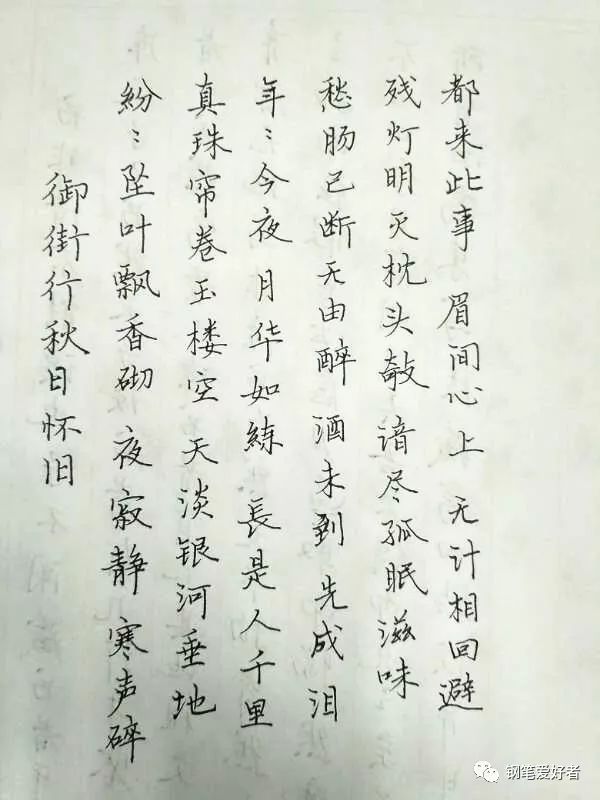 御街行秋日怀旧
紛〻坠叶飘香砌 夜寂静 寒声碎
真珠帘卷玉楼空 天淡银河垂地
年〻今夜 月华如練 長是人千里
愁肠已断无由醉 酒未到 先成泪
残灯明灭枕头敧 谙尽孤眠滋味
都来此事 眉间心上 无计相回避
钢笔爱好者